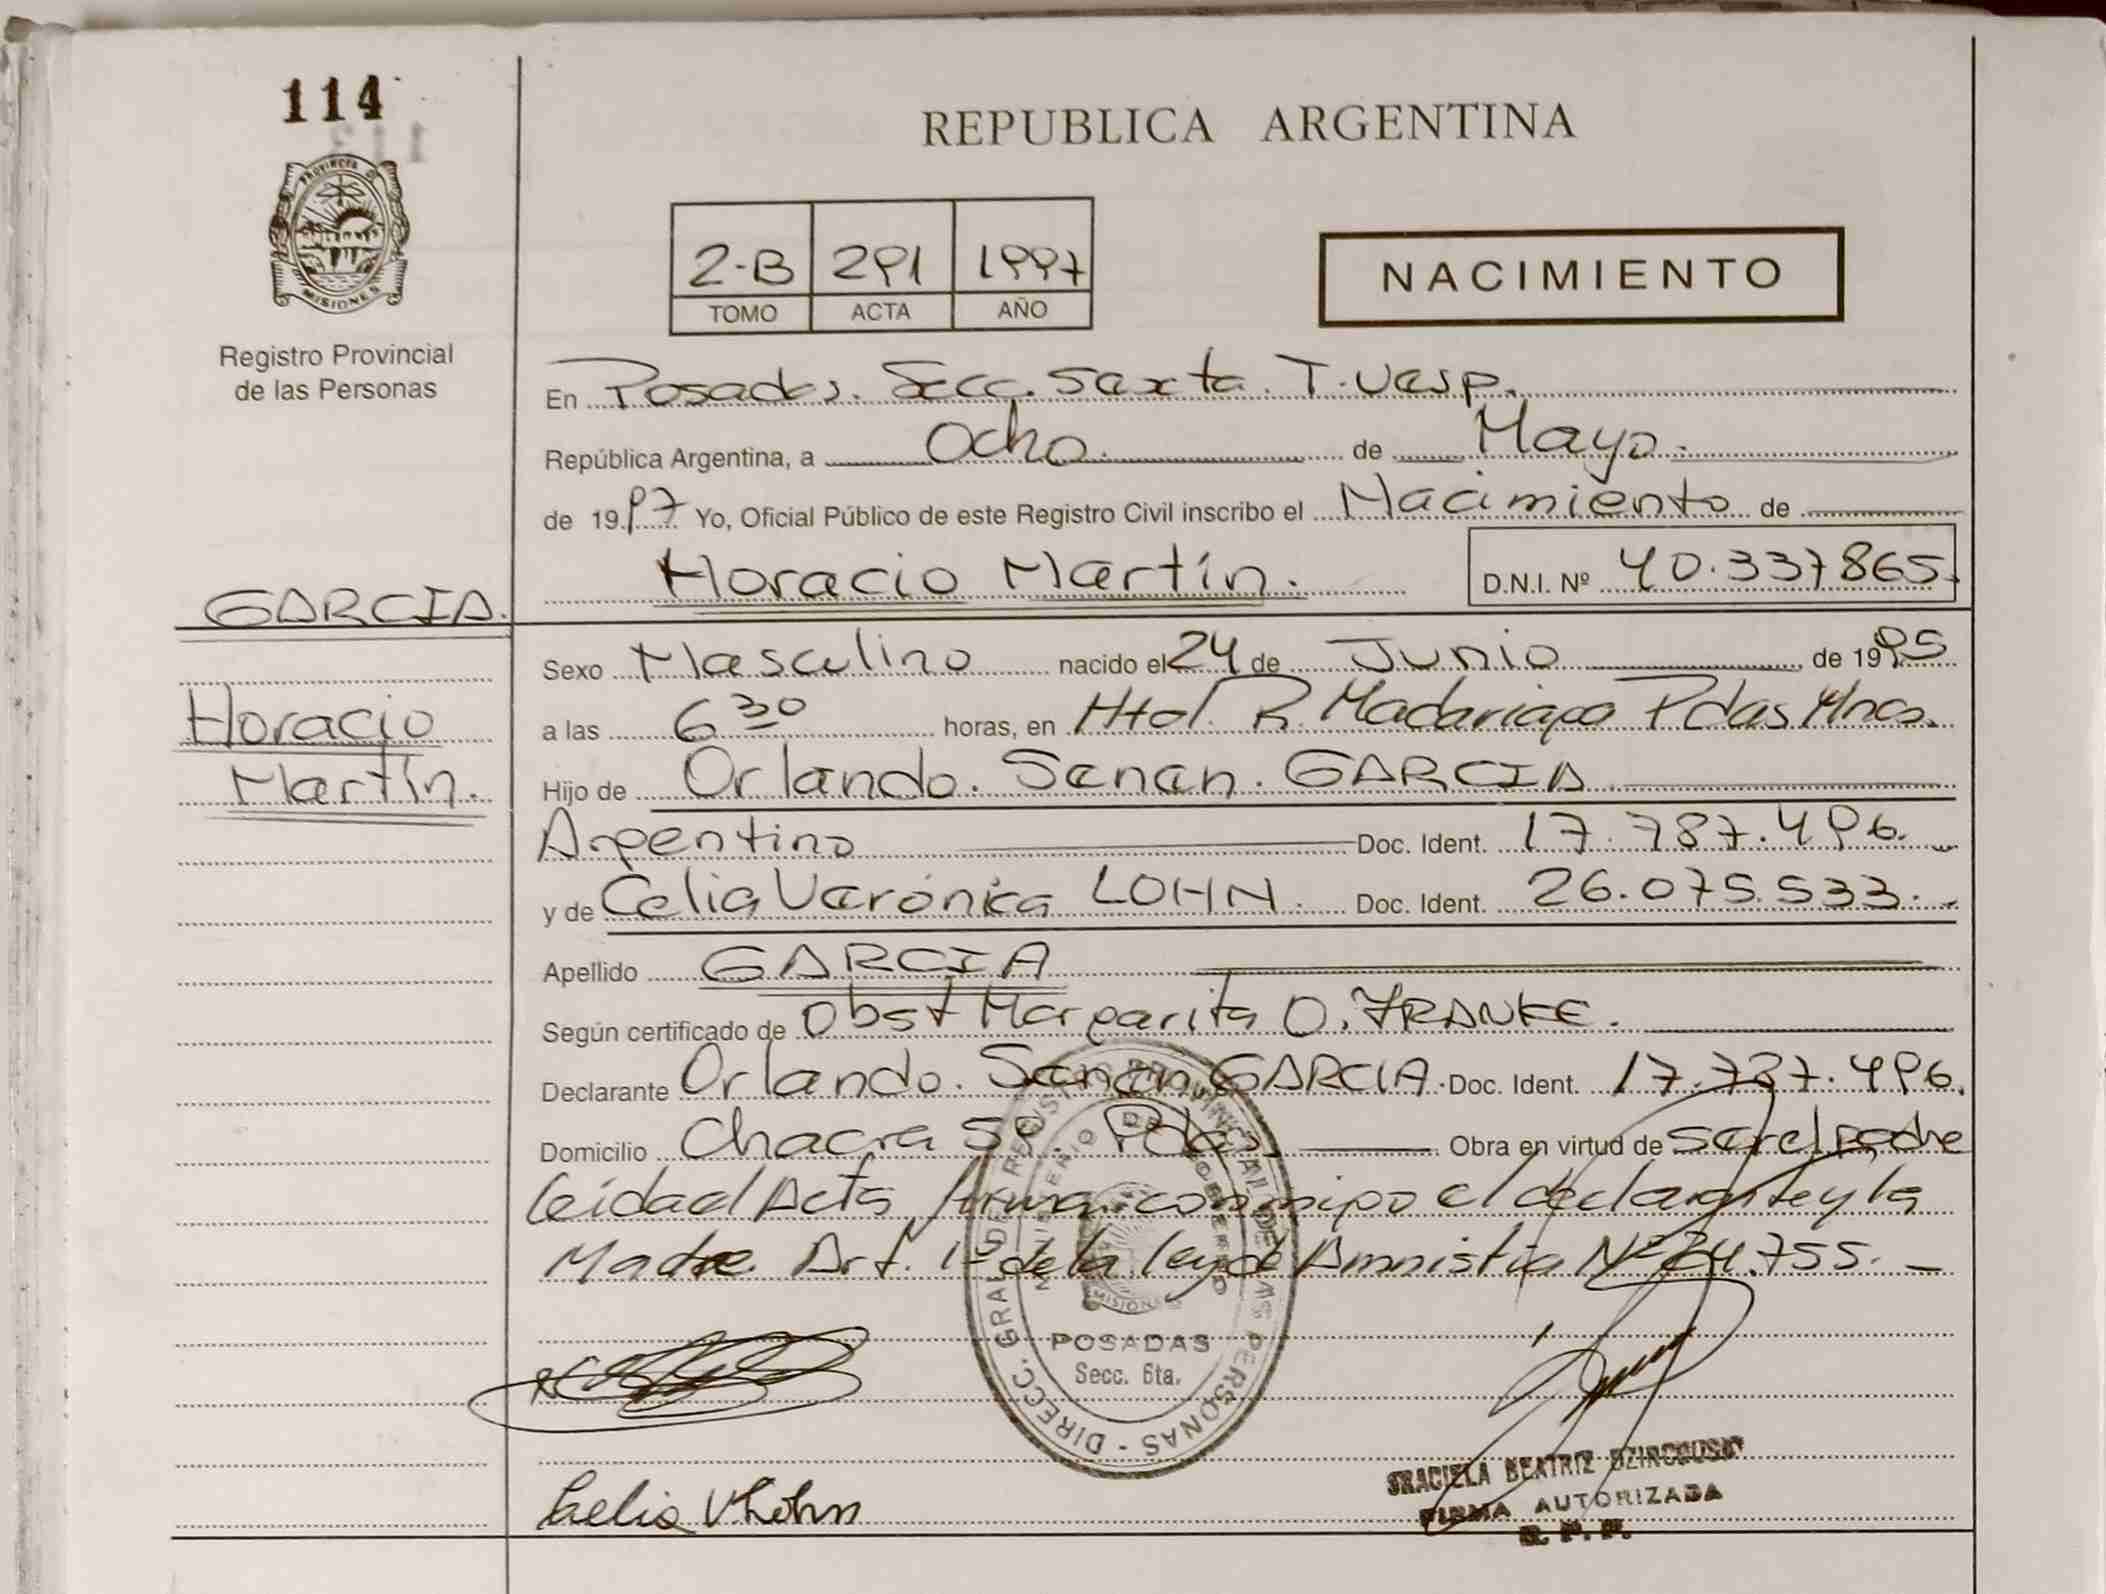 114
REPUBLICA ARGENTINA
PROVINCIA D
MISIONES
Registro Provincial
de las Personas
2-B 291 1997
TOMO ACTA AÑO
NACIMIENTO
En Posadas. Secc. Sexta. T. Vesp.
República Argentina, a Ocho. de Mayo.
de 1997 Yo, Oficial Público de este Registro Civil inscribo el Nacimiento de
Horacio Martín. D.N.I. Nº 40.337865.
GARCIA.
Horacio
Martín.
Sexo Masculino nacido el 24 de Junio de 1995
a las 6 30 horas, en Htal. R. Madariaga Pdas Mnes.
Hijo de Orlando. GARCIA
Argentino Doc. Ident. 17.787.496.
y de Celia Verónica LOHN. Doc. Ident. 26.075.533.
Apellido GARCIA
Según certificado de Obst Margarita O. FRANKE.
Declarante Orlando. GARCIA. Doc. Ident. 17.787.496.
Domicilio Chacra Pdas Obra en virtud de ser el padre
leida el Acta firma conmigo el declarante y la
Madre. Art. 1º de la ley de Amnistia Nº 24.755.
DIRECC. GRAL. DEL REGISTRO PROVINCIAL DE LAS PERSONAS
MINISTERIO DE GOBIERNO
MISIONES
POSADAS
Secc. 6ta.
Celia V Lohn
GRACIELA BEATRIZ
FIRMA AUTORIZADA
R. P. P.